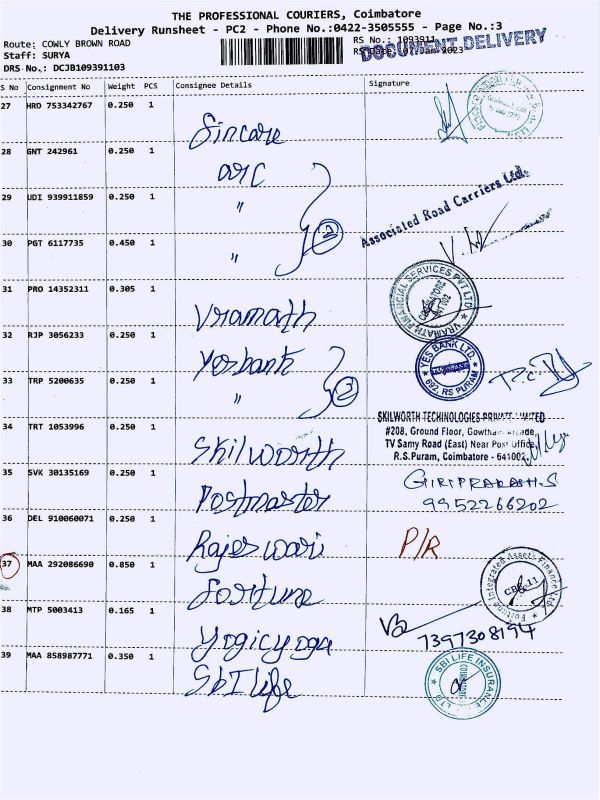 THE PROFESSIONAL COURIERS, Coimbatore
Delivery Runsheet - PC2 - Phone No.:0422-3505555 - Page No.:3
Route: COWLY BROWN ROAD
RS No.: 1093911
DOCUMENT DELIVERY
Staff: SURYA
RS Date: 07-Jan-2023
DRS No.: DCJB109391103
S No Consignment No Weight PCS Consignee Details Signature
27 HRD 753342767 0.250 1
Sincare
28 GNT 242961 0.250 1
ARC
29 UDI 939911859 0.250 1 "
Associated Road Carriers Ltd.
30 PGT 6117735 0.450 1 "
2
31 PRO 14352311 0.305 1
Vramath
VRAMATH FINANCIAL SERVICES PVT LTD
COIMBATORE
32 RJP 3056233 0.250 1
Yesbank
YES BANK LTD.
692, RS PURAM
33 TRP 5200635 0.250 1 "
2
34 TRT 1053996 0.250 1
Skilworth
SKILWORTH TECHINOLOGIES PRIVATE LIMITED
#208, Ground Floor, Gowtham Arcade,
TV Samy Road (East) Near Post Office,
R.S.Puram, Coimbatore - 641002.
35 SVK 30135169 0.250 1
Postmaster
GIRIPRAKASH.S
9952266202
36 DEL 910060071 0.250 1
Rajeswari
P/R
37 MAA 292086690 0.850 1
Fortune
Fortune Integrated Assets Finance Ltd.
CBE-11
38 MTP 5003413 0.165 1
Yogicyoga
7397308194
39 MAA 858987771 0.350 1
SbI life
SBI LIFE INSURANCE
LTD